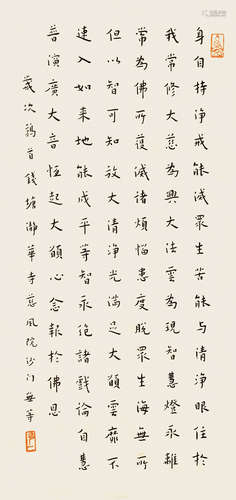 身自持淨戒能滅眾生苦能与清淨眼住於
我常修大慈為興大法雲為現智慧燈永離
常為佛所護滅諸煩惱患度脫眾生海無所
但以智可知放大清淨光滿足大願雲靡不
速入如来地能成平等智永絶諸戲論自慧
普演廣大音恒起大願心念報於佛恩
歲次鶉首錢塘瀞華寺慈風院沙门無等